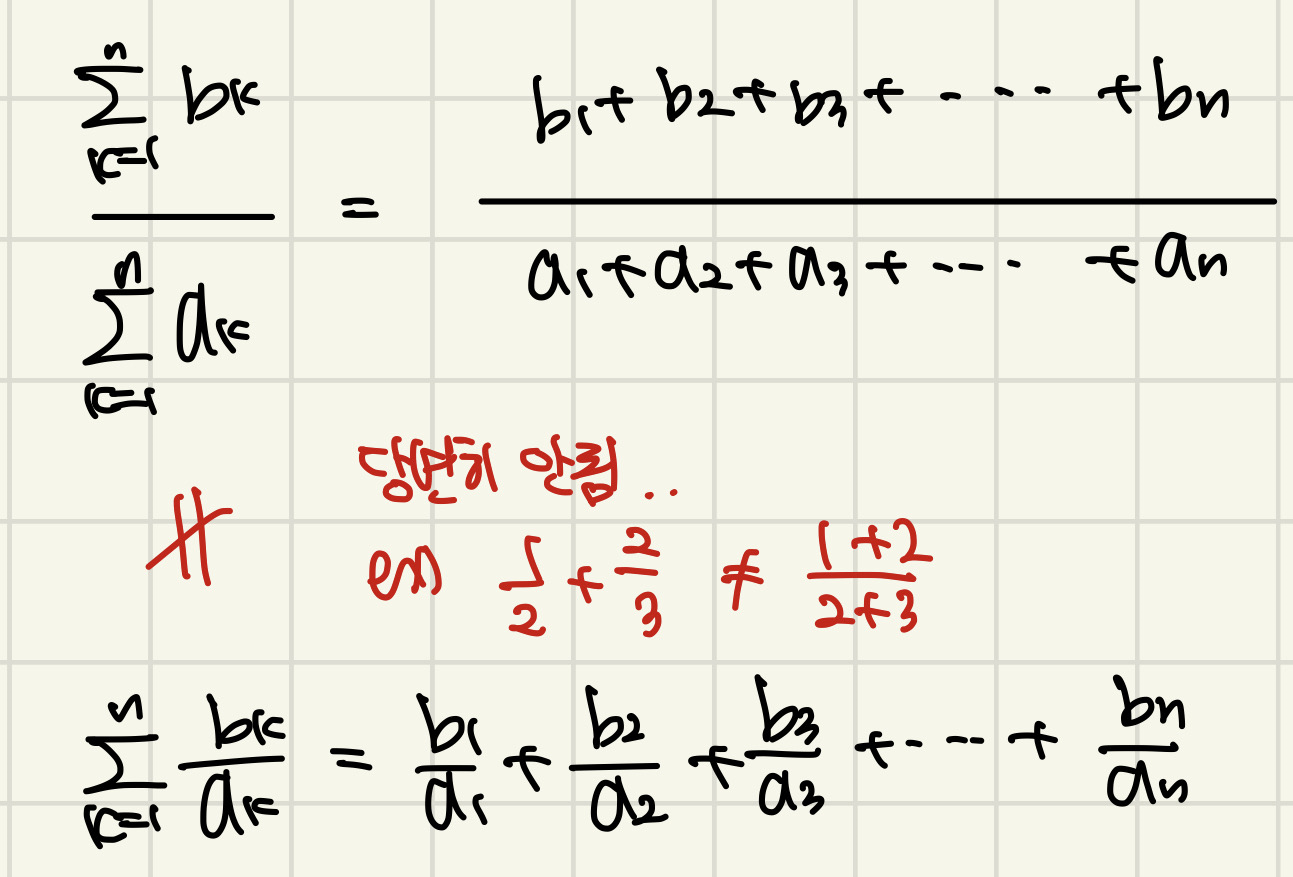 \frac{\sum_{k=1}^{n} b_k}{\sum_{k=1}^{n} a_k} = \frac{b_1 + b_2 + b_3 + \cdots + b_n}{a_1 + a_2 + a_3 + \cdots + a_n}
당연히 안됨..
≠ ex) \frac{1}{2} + \frac{2}{3} ≠ \frac{1+2}{2+3}
\sum_{k=1}^{n} \frac{b_k}{a_k} = \frac{b_1}{a_1} + \frac{b_2}{a_2} + \frac{b_3}{a_3} + \cdots + \frac{b_n}{a_n}